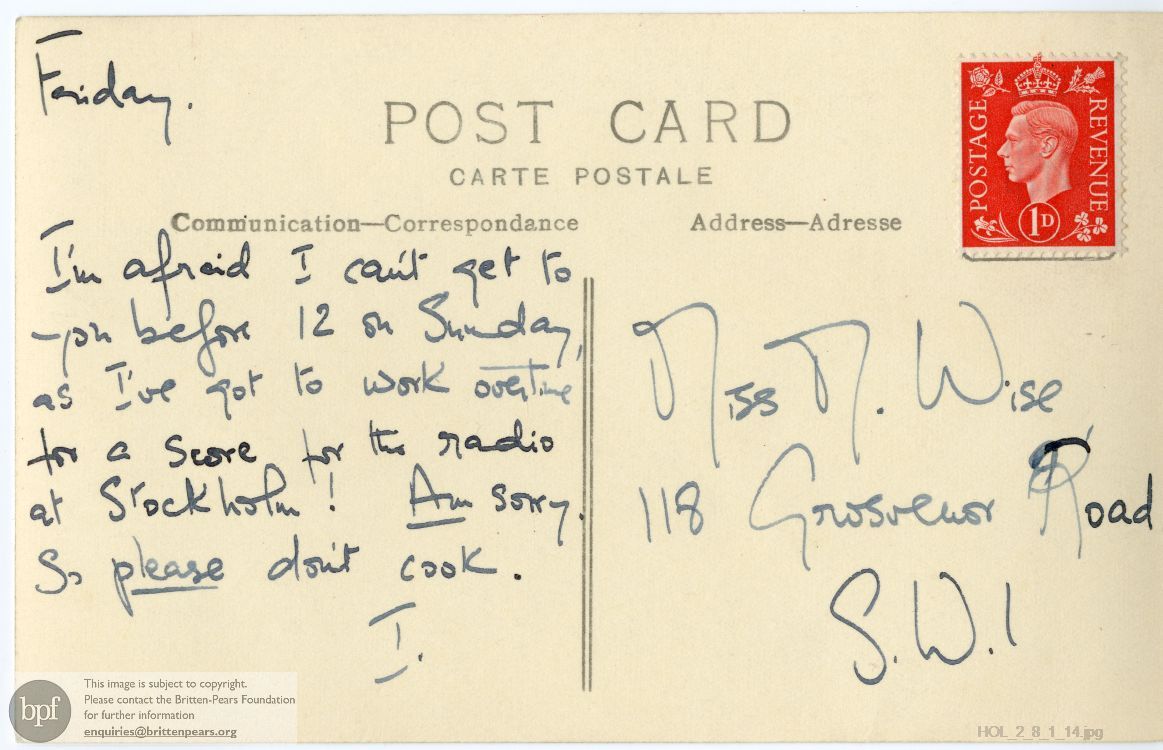 Friday.
POST CARD
CARTE POSTALE
Communication—Correspondance
Address—Adresse
POSTAGE
REVENUE
1D
I'm afraid I can't get to
you before 12 on Sunday,
as I've got to work overtime
for a score for the radio
at Stockholm! Am sorry.
So please don't cook.
I.
Miss M. Wise
118 Grosvenor Road
S.W.1
bpf
This image is subject to copyright.
Please contact the Britten-Pears Foundation
for further information
enquiries@brittenpears.org
HOL_2_8_1_14.jpg